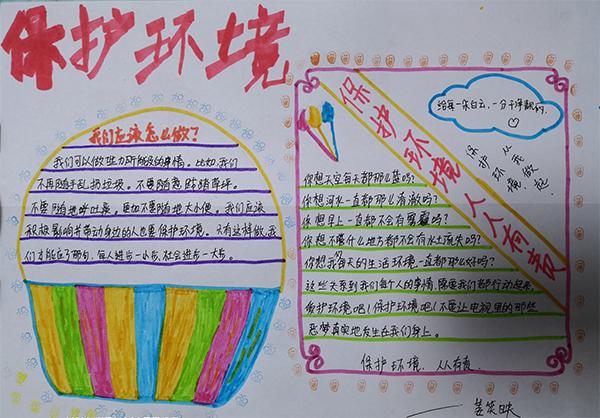 保护环境
我们应该怎么做?
我们可以做些力所能及的事情。比如,我们
不再随手乱扔垃圾。不要随意踩踏草坪。
不要随地呼吐痰。更加不要随地大小便。我们应该
积极影响并带动身边的人也要保护环境。只有这样做,我
们才能应了那句,每人进步一小步,社会进步一大步。
保护环境 人人有责
给每一朵白云,一分干净
保护环境,从我做起
你想天空每天都那么蓝吗?
你想河水一直都那么清澈吗?
你想早上一直都不会有雾霾吗?
你想不管什么地方都不会有水土流失吗?
你想我每天的生活环境一直都那么好吗?
这些关系到我们每个人的事情,需要我们都行动起来,
爱护环境吧!保护环境吧!不要让电视里的那些
恶梦真实地发生在我们身上。
保护环境,人人有责